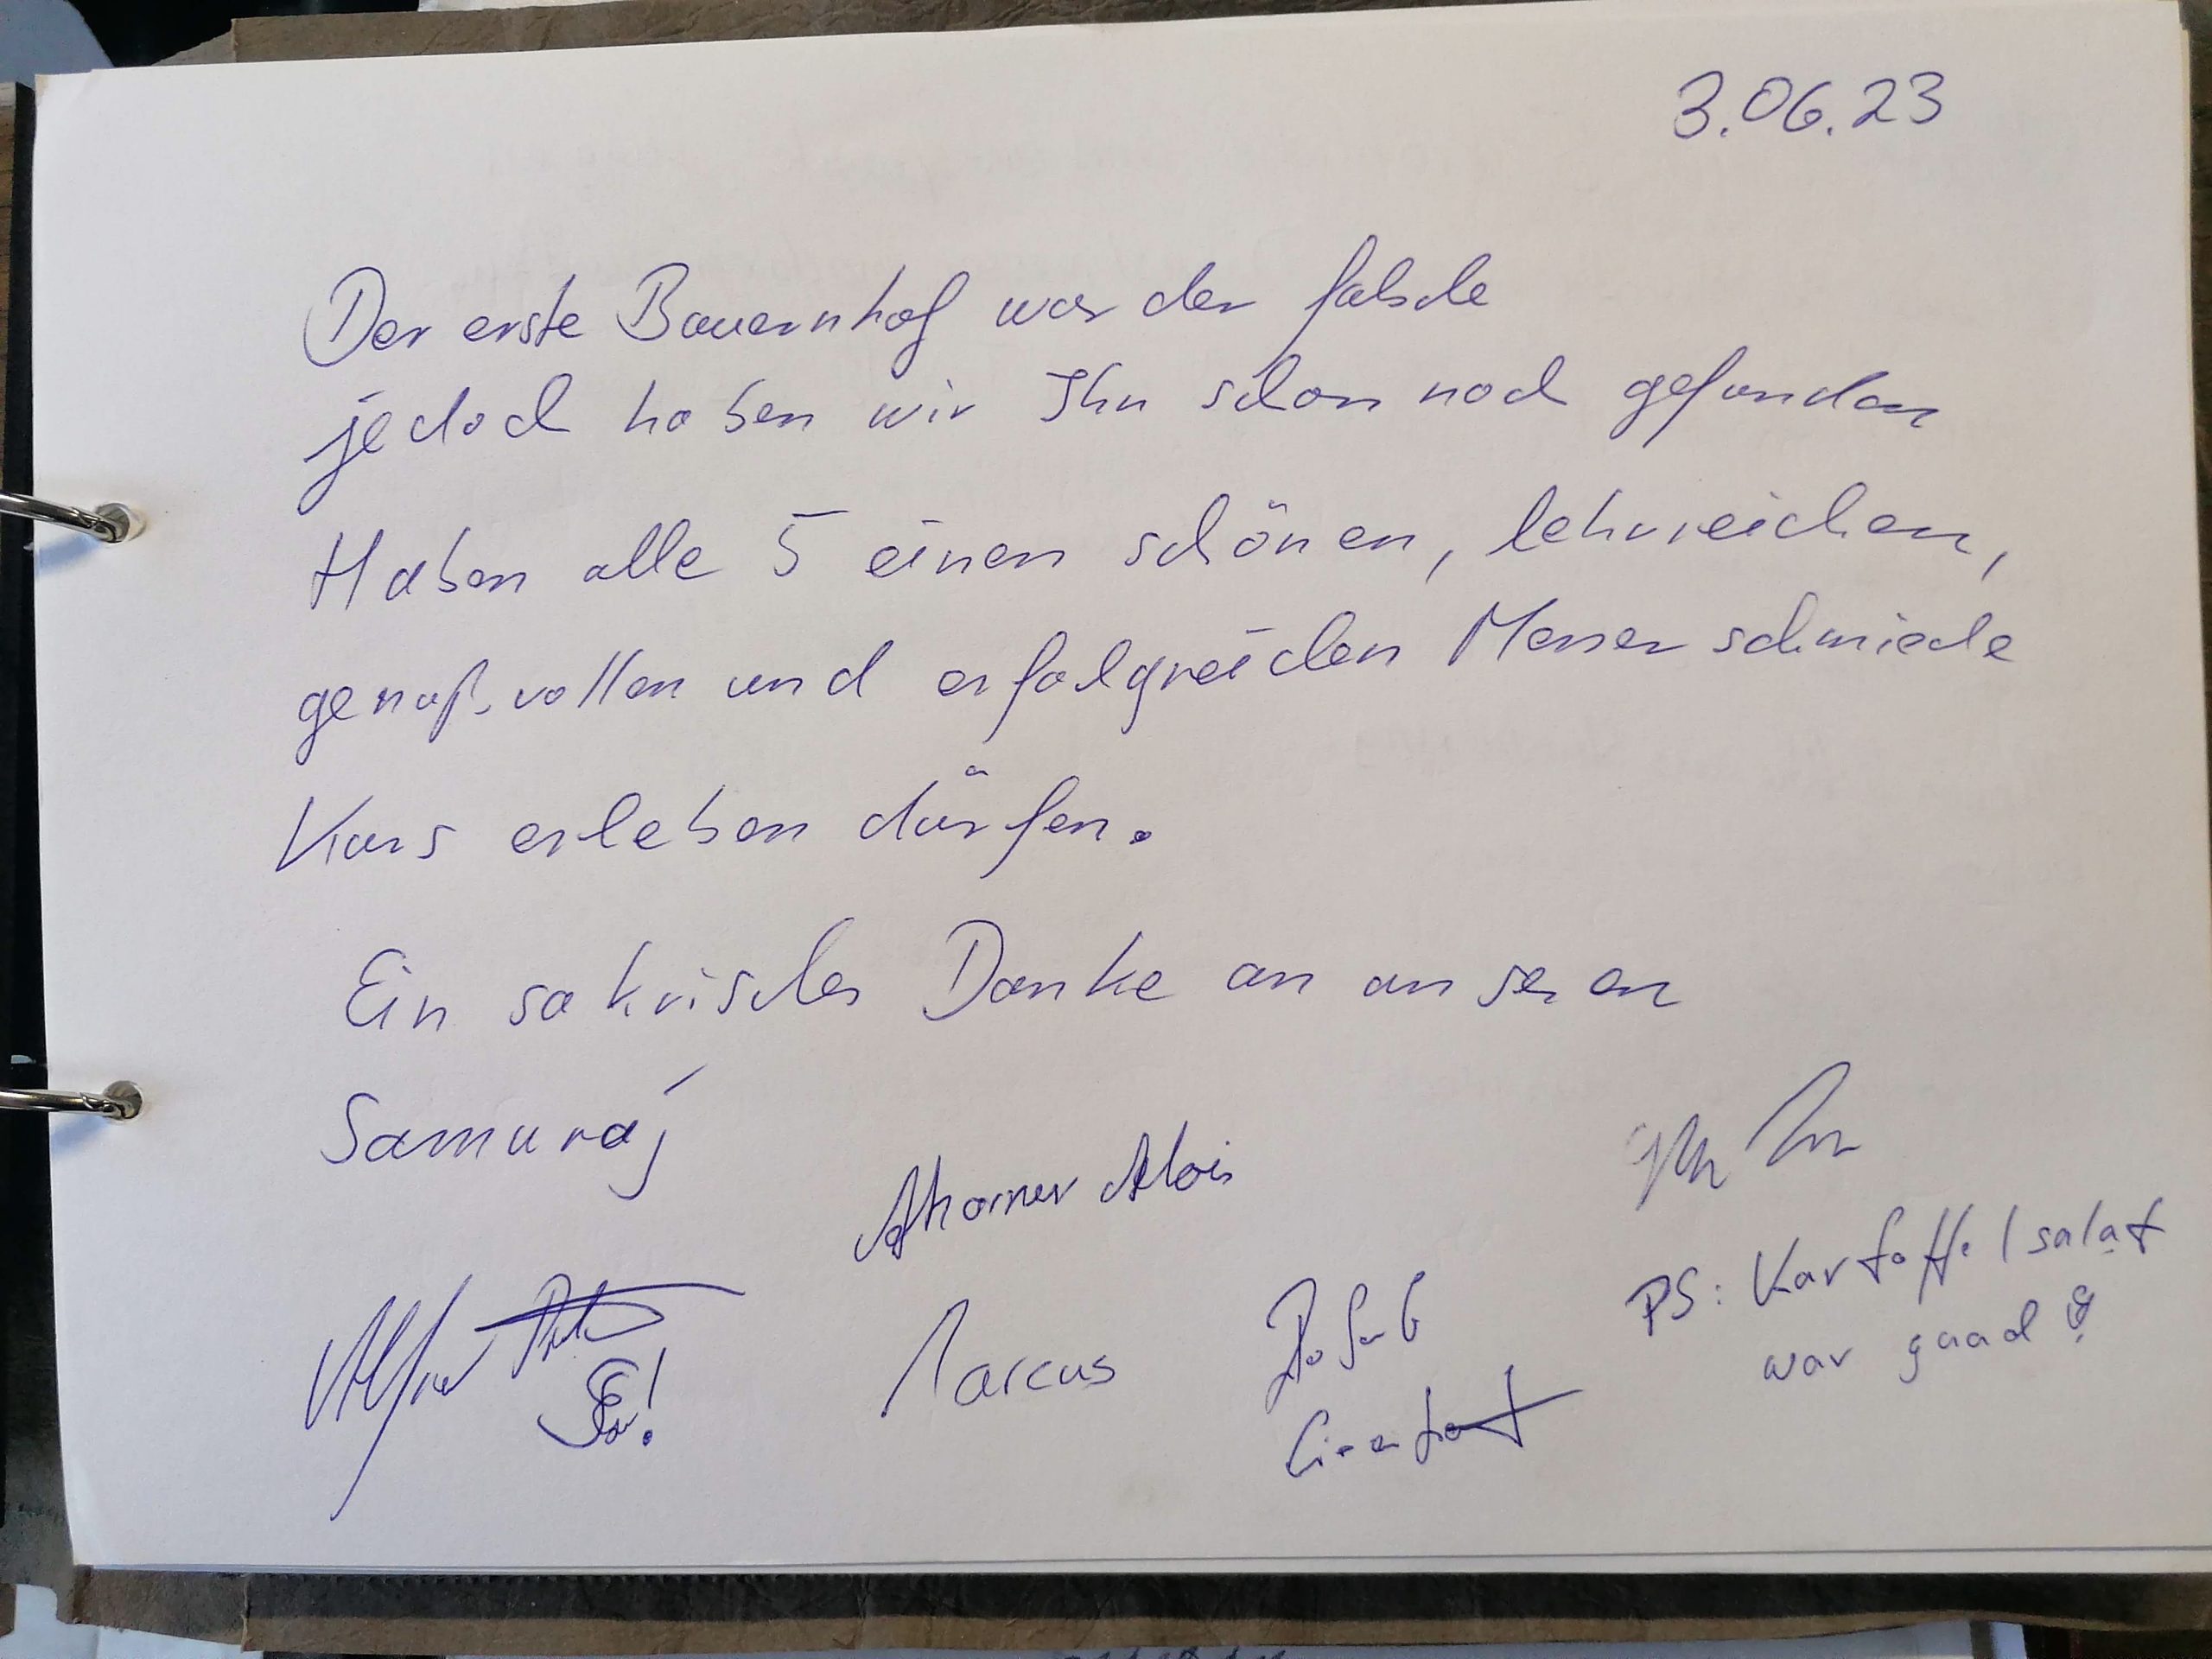 3.06.23
Der erste Bauernhof war der falsche
jedoch haben wir Ihn schon noch gefunden
Haben alle 5 einen schönen, lehrreichen,
genußvollen und erfolgreichen Messerschmiede
Kurs erleben dürfen.
Ein sakrisches Danke an unseren
Samuraj
Ahorner Alois
Marcus
PS: Kartoffelsalat
war guad!